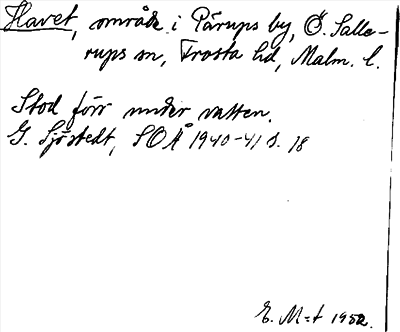 Havet, område i Pärups by, Ö. Salle-
rups sn, Frosta hd, Malm. l.
Stod förr under vatten.
G. Sjöstedt, SOÅ 1940-41 s. 18
E. M=t 1952.